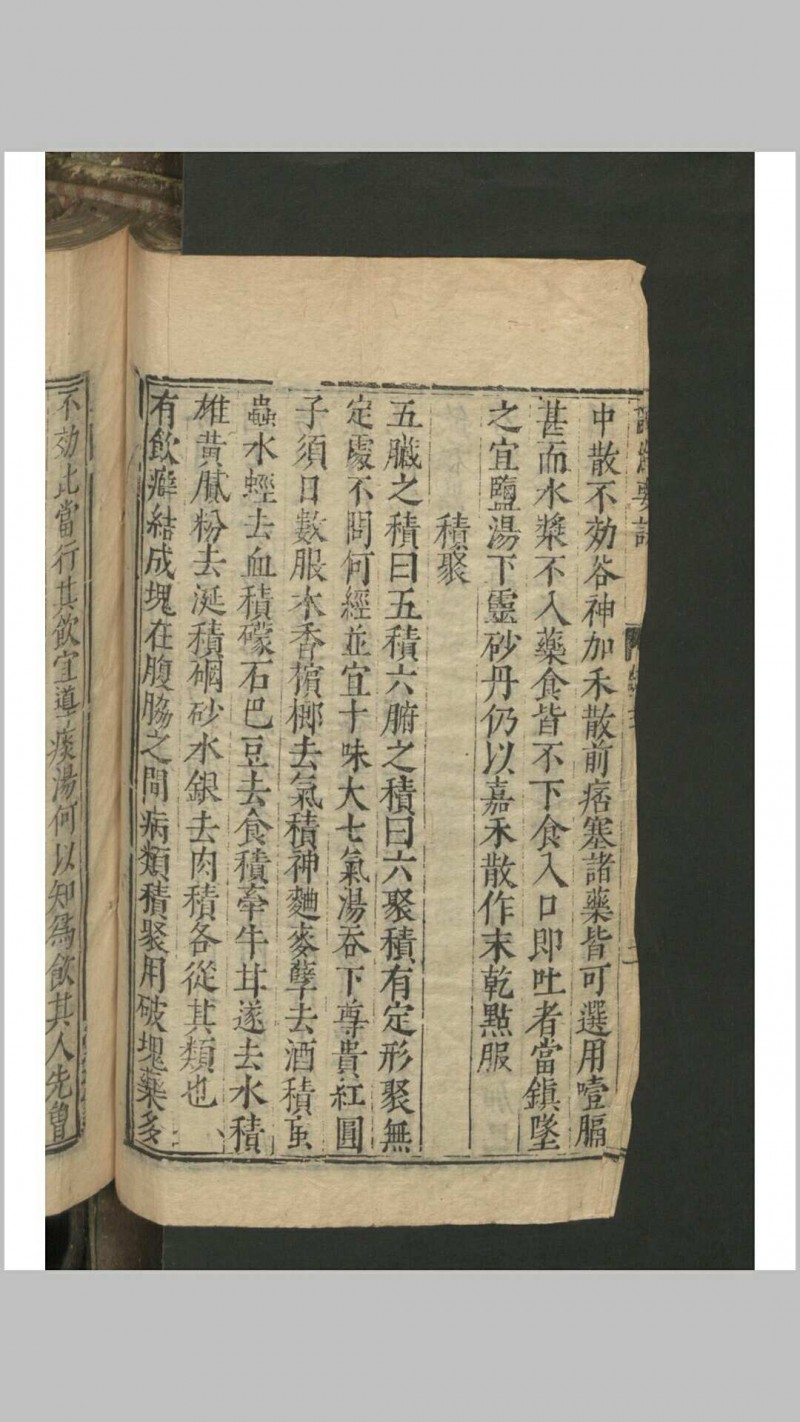 中散不効谷神加禾散前痞塞諸藥皆可選用噎膈
甚而水漿不入藥食皆不下食入口即吐者當鎮墜
之宜鹽湯下靈砂丹仍以嘉禾散作末乾點服
積聚
五臟之積曰五積六腑之積曰六聚積有定形聚無
定處不問何經並宜十味大七氣湯吞下尊貴紅圓
子須日數服木香檳榔去氣積神麯麥孽去酒積䖟
蟲水蛭去血積礞石巴豆去食積牽牛甘遂去水積
雄黃膩粉去涎積硇砂水銀去肉積各從其類也
有飲癖結成塊在腹脇之間病類積聚用破塊藥多
不効此當行其飲宜導痰湯何以知爲飲其人先曾